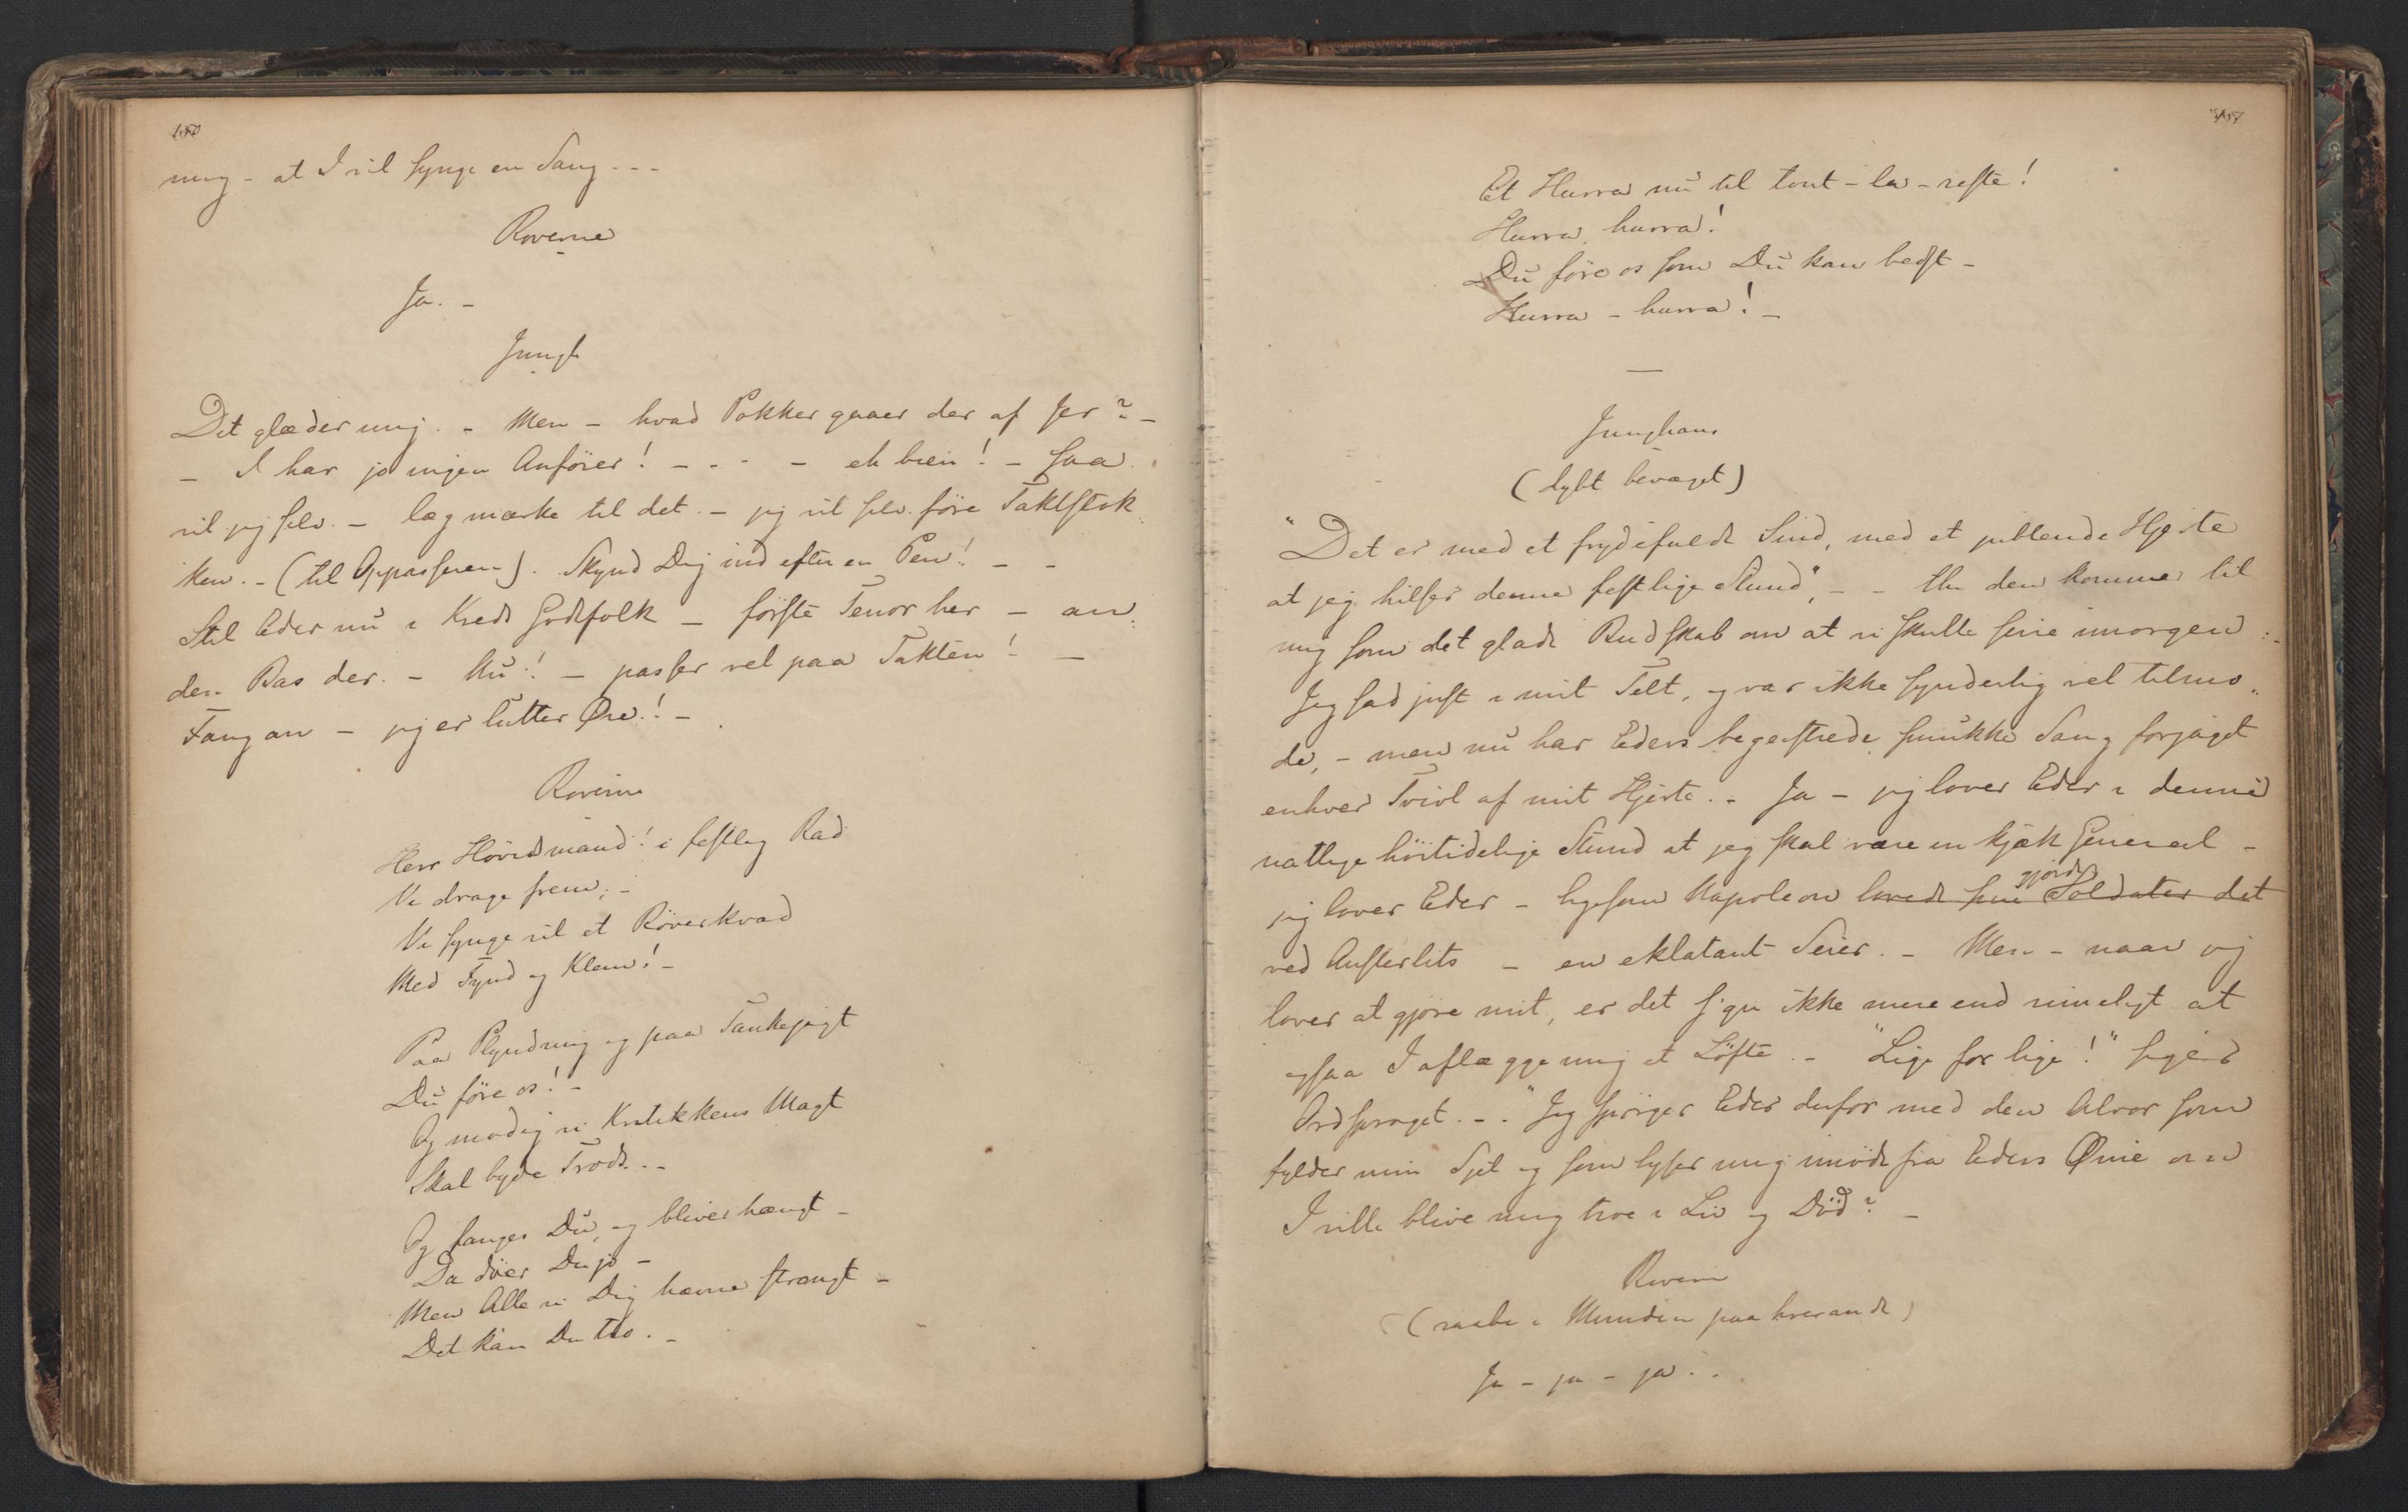 150
mig - at I vil synge en Sang - - -
Røverne
Ja. -
Jungh
Det glæder mig. - Men - hvad Pokker gaaer der af Jer? -
- I har jo ingen Anfører! - - - - eh bien! - saa
vil jeg selv - læg mærke til det - jeg vil selv føre Taktstok-
ken. - (til Oppasseren). Skynd Dig ind efter en Pen! - -
Stil Eder nu i Kreds Godtfolk - første Tenor her - an-
den Bas der. - Nu! - passer vel paa Takten! -
Fang an - jeg er lutter Øre! -
Røverne
Herr Høvedsmand! i festlig Rad
Vi drage frem; -
Vi synge vil et Røverkvad
Med Fynd og Klem! -
Paa Plyndring og paa Tankejagt
Du føre os! -
Og modig vi Kritikkens Magt
Skal byde Trods. -
Og fanges Du, og bliver hængt -
Da døer Du jo -
Men Alle vi Dig hævne strængt -
Det kan Du tro. -
151
Et Hurra nu til tout-la-reste!
Hurra, hurra!
Du føre os som Du kan bedst -
Hurra - hurra! -
—
Junghans
(dybt bevæget)
"Det er med et frydefuldt Sind, med et jublende Hjerte
at jeg hilser denne festlige Stund", - - thi den kommer til
mig som det glade Budskab om at vi skulle seire imorgen :-
Jeg sad just i mit Telt, og var ikke synderlig vel tilmo-
de, - men nu har Eders begeistrede smukke Sang forjaget
enhver Tvivl af mit Hjerte. - Ja - jeg lover Eder i denne
natlige høitidelige Stund at jeg skal være en kjæk General -
jeg lover Eder - ligesom Napoleon lovede sine Soldater det
gjorde
ved Austerlits - en eklatant Seier. - Men - naar jeg
lover at gjøre mit, er det s'gu ikke mere end rimeligt at
ogsaa I aflægge mig et Løfte. - "Lige for lige!" siger
Ordsproget. - "Jeg spørger Eder derfor med den Alvor som
fylder min Sjel og som lyser mig imøde fra Eders Øine om
I ville blive mig troe i Liv og Død? -
Røverne
(raabe i Munden paa hverandre)
Ja - ja - ja. .